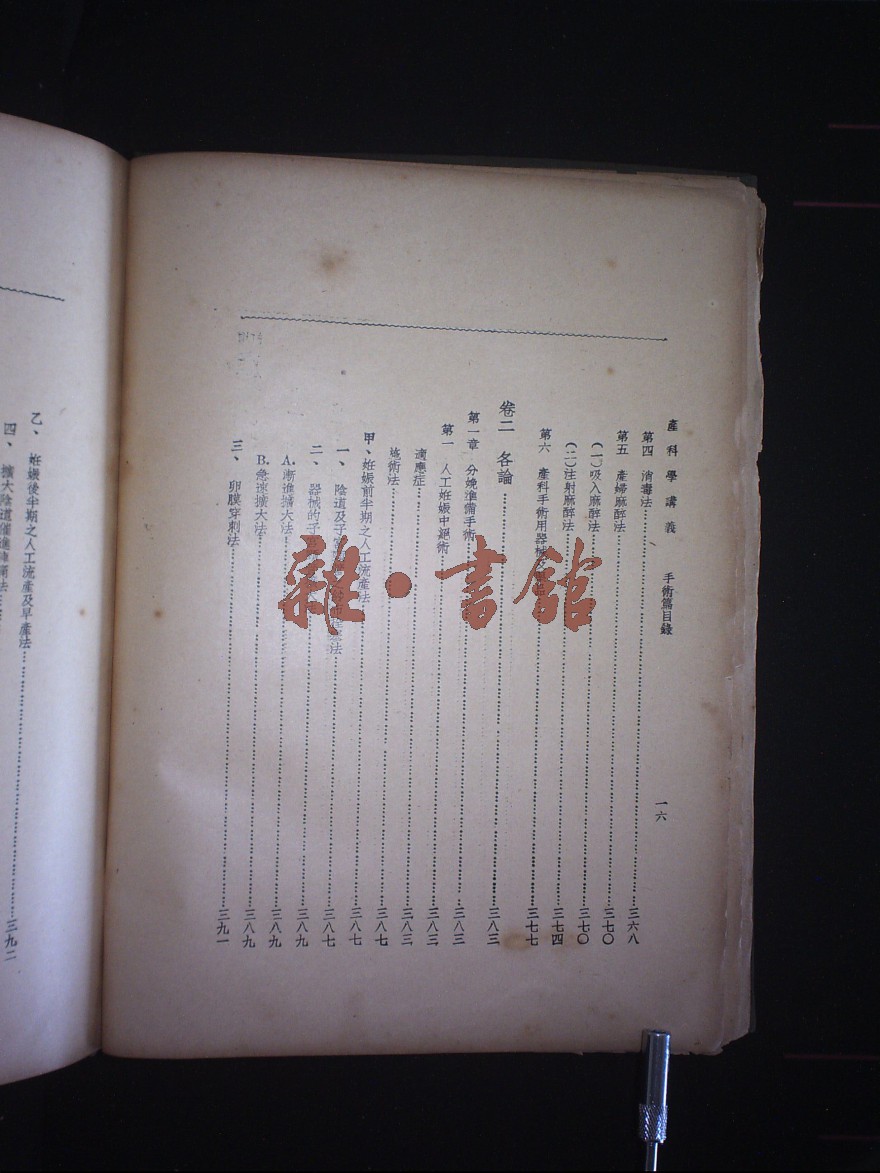 產科學講義　手術篇目錄　一六
第四　消毒法……三六八
第五　產婦麻醉法……三七〇
(一)吸入麻醉法……三七〇
(二)注射麻醉法……三七四
第六　產科手術用器械及……三七七
卷二　各論……三八三
第一章　分娩準備手術……三八三
第一　人工妊娠中絕術……三八三
適應症……三八三
施術法……三八七
甲、妊娠前半期之人工流產法……三八七
一、陰道及子宮……法……三八七
二、器械的子……三八九
A.漸進擴大法……三八九
B.急速擴大法……三八九
三、卵膜穿刺法……三九一
乙、妊娠後半期之人工流產及早產法……三九二
四、擴大陰道催進陣痛法
雜·書館